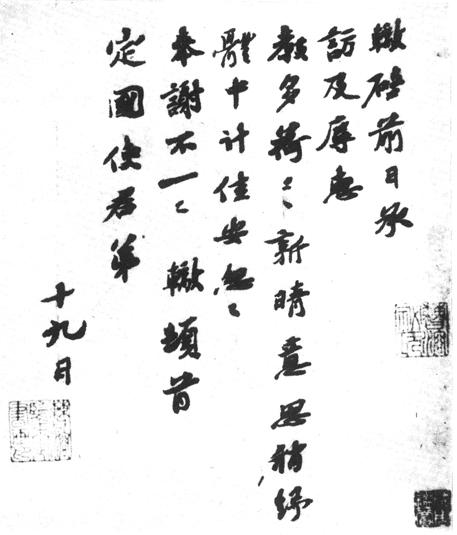 轍啓前日承
訪及辱惠
教多荷〻新晴意思稍紓
體中計佳安怱〻
奉謝不一〻轍頓首
定國使君弟
十九日